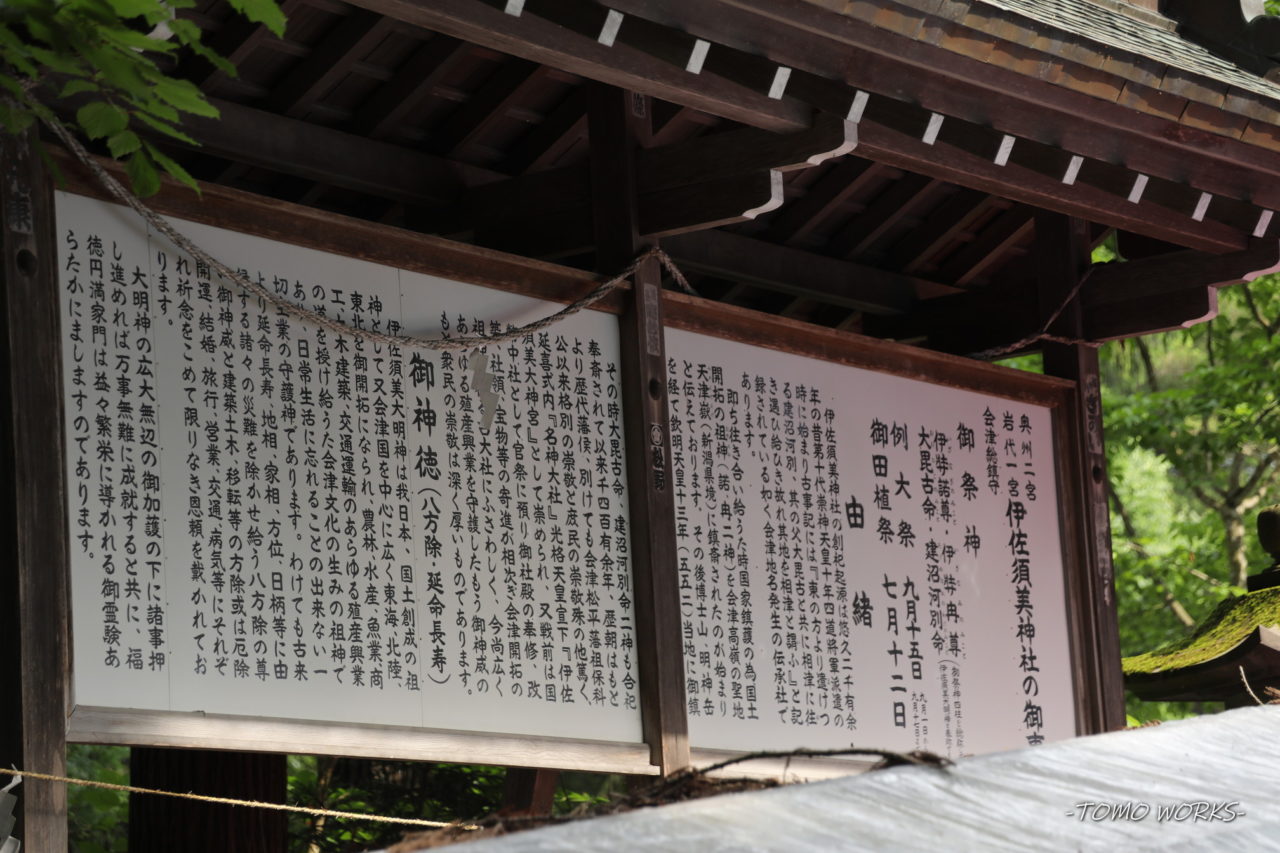 奥州二宮
岩代一宮 伊佐須美神社の御
会津総鎮守
御祭神
伊弉諾尊・伊弉冉尊
大毘古命・建沼河別命
例大祭 九月十五日
御田植祭 七月十二日
由緒
伊佐須美神社の創祀起源は悠久二千有余
年の昔第十代崇神天皇十年四道将軍派遣の
時に始まり古事記には『東の方より遣けつ
る建沼河別、其の父大毘古と共に相津に往
き遇ひ給ひき故れ其地を相津と謂ふ』と記
録されている如く会津地名発生の伝承社で
あります。
即ち往き合い給うた時国家鎮護の為国土
開拓の祖神(諾・冉二神)を会津高嶺の聖地
天津嶽(新潟県境)に鎮斎されたのが始まり
と伝えております。その後博士山、明神岳
を経て欽明天皇十三年(五五二)当地に御鎮
その時大毘古命、建沼河別命二神も合祀
奉斎されて以来千四百有余年、歴朝はもと
より歴代藩侯、別けても会津松平藩祖保科
公以来格別の崇敬と庶民の崇敬殊の他篤く、
延喜式内『名神大社』光格天皇宣下『伊佐
須美大神宮』として崇められ、又戦前は国
幣中社として官祭に預り御社殿の奉修、改
築、社領、宝物等の寄進が相次ぎ会津開拓の
祖 大社にふさわしく、今尚広く
あけゆる殖産興業を守護したもう御神威の
も と衆民の崇敬は深く厚いものであります。
御神徳(八方除・延命長寿)
伊佐須美大明神は我日本、国土創成の祖
神として又会津国を中心に広く東海、北陸、
東北を御開拓になられ、農林、水産、魚業、商
工、土木建築、交通運輸のあらゆる殖産興業
の道を授け給うた会津文化の生みの祖神で
あり、日常生活に忘れることの出来ない一
切工業の守護神であります。わけても古来
より延命長寿、地相、家相、方位、日柄等に由
縁する諸々の災難を除かせ給う八方除の尊
い御神威と建築土木・移転等の方除或は厄除
開運、結婚、旅行、営業、交通、病気等にそれぞ
れ祈念をこめて限りなき恩頼を戴かれてお
ります。
大明神の広大無辺の御加護の下に諸事押
し進めれば万事無難に成就すると共に、福
徳円満家門は益々繁栄に導かれる御霊験あ
らたかにましますのであります。
-TOMO WORKS-